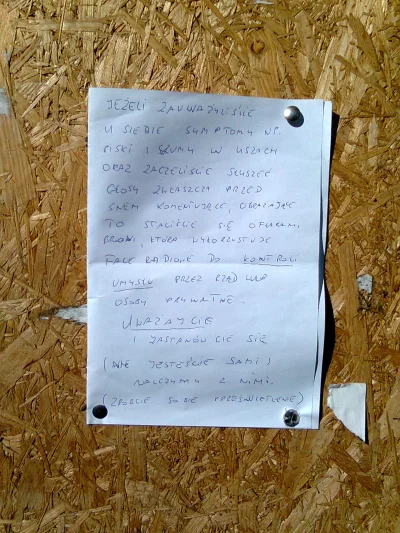 JEŻELI ZAUWAŻYLIŚCIE
U SIEBIE SYMPTOMY NP.
PISKI I SZUMY W USZACH
ORAZ ZACZELIŚCIE SŁYSZEĆ
GŁOSY ZWŁASZCZA PRZED
SNEM KOMENTUJĄCE, OBRAŻAJĄCE
TO STALIŚCIE SIĘ OFIARAMI
BRONI, KTÓRA WYKORZYSTUJE
FALE RADIOWE DO KONTROLI
UMYSŁU PRZEZ RZĄD LUB
OSOBY PRYWATNE.
UWAŻAJCIE
I ZASTANÓWCIE SIĘ
(NIE JESTEŚCIE SAMI)
WALCZYMY Z NIMI.
(ZRÓBCIE SOBIE PRZEŚWIETLENIE)